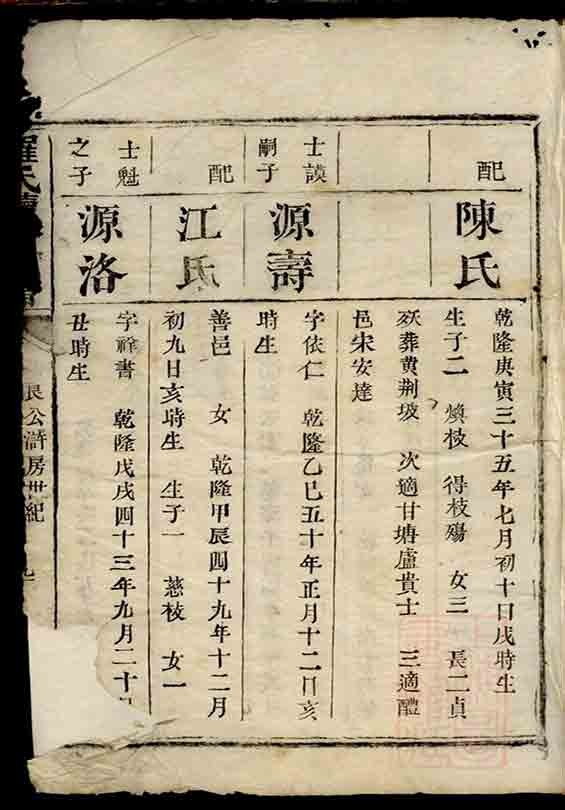 配
陳氏
乾隆庚寅三十五年七月初十日戌時生
生子二 煥枝 得枝殤 女三 長二貞
殀葬黃荆坡 次適甘塘盧貴士 三適醴
邑宋安達
士謨
嗣子
源壽
字依仁 乾隆乙巳五十年正月十二日亥
時生
配
江氏
善邑 女 乾隆甲辰四十九年十二月
初九日亥時生 生子一 慈枝 女一
士魁
之子
源洛
字祥書 乾隆戊戌四十三年九月二十
丑時生
羅氏
良公滸房世紀